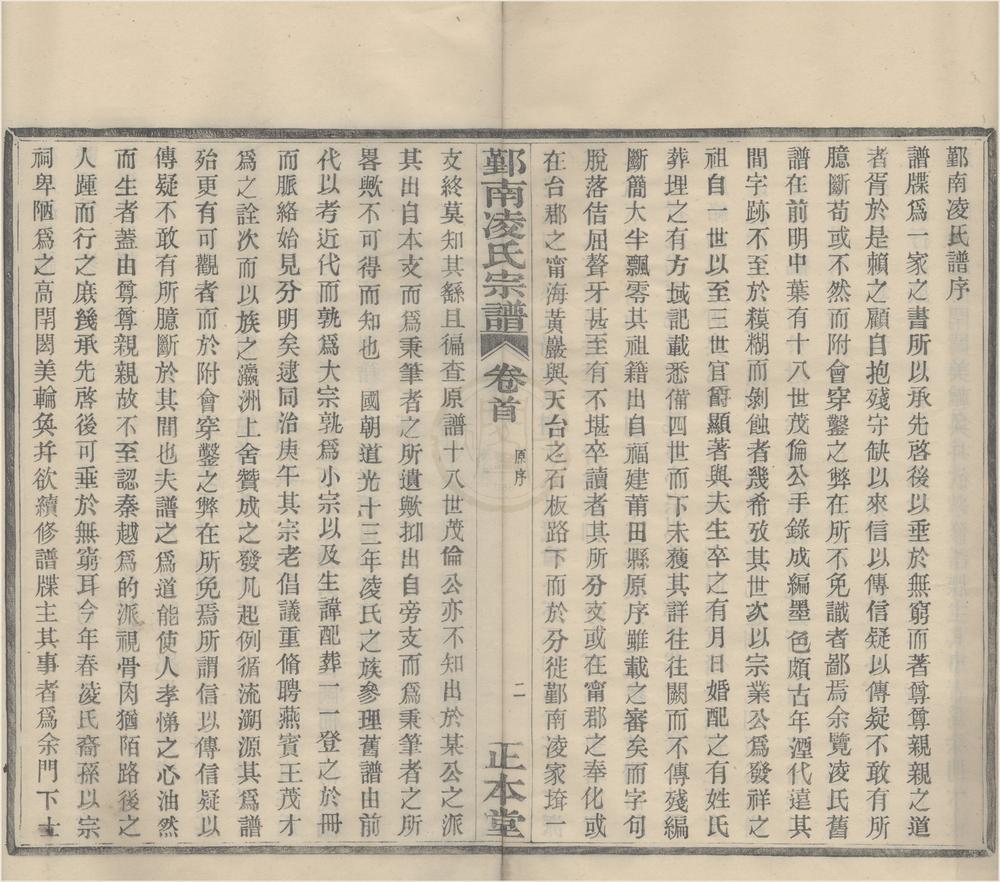 鄞南凌氏譜序
譜牒爲一家之書所以承先啓後以垂於無窮而著尊尊親親之道
者胥於是賴之顧自抱殘守缺以來信以傳信疑以傳疑不敢有所
臆斷苟或不然而附會穿鑿之弊在所不免識者鄙焉余覽凌氏舊
譜在前明中葉有十八世茂倫公手錄成編墨色頗古年湮代遠其
間字跡不至於糢糊而剝蝕者幾希攷其世次以宗業公爲發祥之
祖自一世以至三世官爵顯著與夫生卒之有月日婚配之有姓氏
葬埋之有方域記載悉備四世而下未獲其詳往往闕而不傳殘編
斷簡大半飄零其祖籍出自福建莆田縣原序雖載之審矣而字句
脫落佶屈聱牙甚至有不堪卒讀者其所分支或在甯郡之奉化或
在台郡之甯海黃巖與天台之石板路下而於分徙鄞南凌家堷一
鄞南凌氏宗譜
卷首
原序
二
正本堂
支終莫知其繇且徧查原譜十八世茂倫公亦不知出於某公之派
其出自本支而爲秉筆者之所遺歟抑出自旁支而爲秉筆者之所
畧歟不可得而知也 國朝道光十三年凌氏之族參理舊譜由前
代以考近代而孰爲大宗孰爲小宗以及生諱配葬一一登之於冊
而脈絡始見分明矣逮同治庚午其宗老倡議重脩聘燕賓王茂才
爲之詮次而以族之瀛洲上舍贊成之發凡起例循流溯源其爲譜
殆更有可觀者而於附會穿鑿之弊在所免焉所謂信以傳信疑以
傳疑不敢有所臆斷於其間也夫譜之爲道能使人孝悌之心油然
而生者蓋由尊尊親親故不至認秦越爲的派視骨肉猶陌路後之
人踵而行之庶幾承先啓後可垂於無窮耳今年春凌氏裔孫以宗
祠卑陋爲之高閈閎美輪奐幷欲續修譜牒主其事者爲余門下士